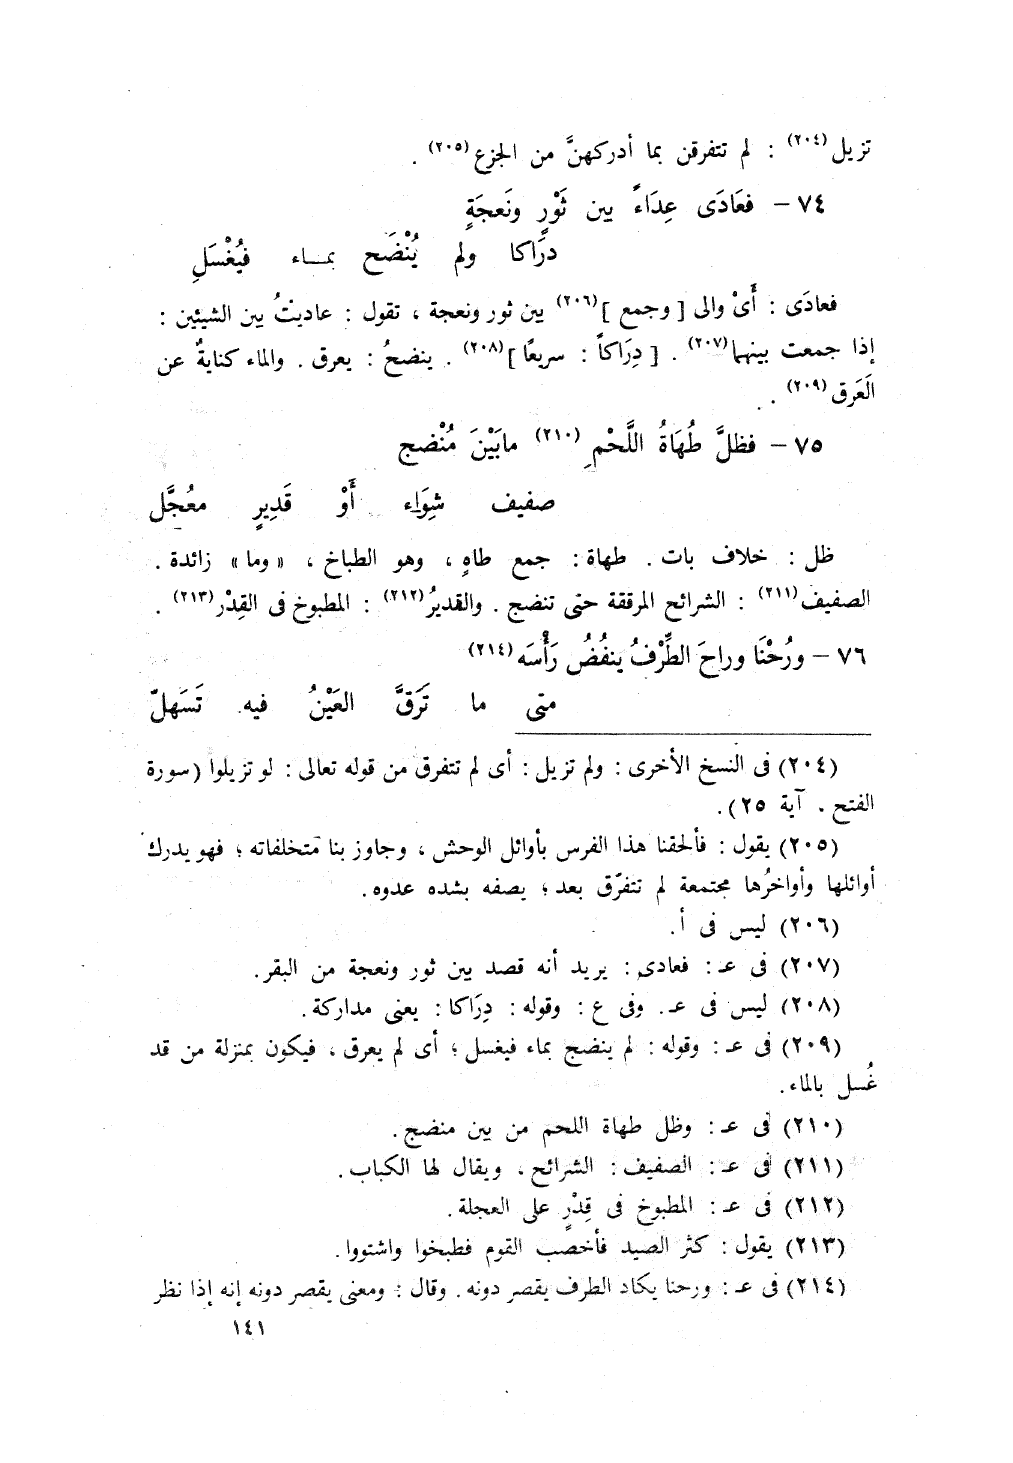 تزيل (٢٠٤) : لم تتفرقن بما أدركهنَّ من الجزع (٢٠٥) .
٧٤ – فعَادَى عِدَاءً بين ثَوْرٍ ونَعجَةٍ
درَاكا ولم يُنْضَح بمـاء فيُغْسَلِ
فعادَى : أَىْ والى [ وجمع ] (٢٠٦) بين ثور ونعجة ، تقول : عاديتُ بين الشيئين :
إذا جمعت بينهما (٢٠٧) . [ دِرَاكاً : سريعًا ] (٢٠٨) . ينضحُ : يعرق . والماء كنايةٌ عن
العَرق (٢٠٩) .
٧٥ – فظلَّ طُهَاةُ اللَّحْمِ (٢١٠) مابَيْنَ مُنْضج
صفيف شِوَاء أَوْ قَدِيرٍ معُجَّل
ظل : خلاف بات . طهاة : جمع طاهٍ ، وهو الطباخ ، « وما » زائدة .
الصفيف (٢١١) : الشرائح المرققة حتى تنضج . والقديرُ (٢١٢) : المطبوخ فى القِدْر (٢١٣) .
٧٦ – ورُحْنَا وراحَ الطِّرْفُ ينفُضُ رَأْسَه (٢١٤)
متى ما تَرَقَّ العَيْنُ فيه تَسَهلّ
(٢٠٤) فى النسخ الأخرى : ولم تزيل : أى لم تتفرق من قوله تعالى : لو تزيلوا (سورة
الفتح . آية ٢٥).
(٢٠٥) يقول : فألحقنا هذا الفرس بأوائل الوحش ، وجاوز بنا متخلفاته ؛ فهو يدرك
أوائلها وأواخرُها مجتمعة لم تتفرّق بعد ؛ يصفه بشده عدوه .
(٢٠٦) ليس فى أ.
(٢٠٧) فى عـ : فعادى : يريد أنه قصد بين ثور ونعجة من البقر .
(٢٠٨) ليس فى عـ. وفى ع : وقوله : دِرَاكا : يعنى مداركة .
(٢٠٩) فى عـ : وقوله : لم ينضج بماء فيغسل ؛ أى لم يعرق ، فيكون بمنزلة من قد
غُسل بالماء .
(٢١٠) فى عـ : وظل طهاة اللحم من بين منضج .
(٢١١) فى عـ : الصفيف : الشرائح ، ويقال لها الكباب .
(٢١٢) فى عـ : المطبوخ فى قِدْرٍ على العجلة .
(٢١٣) يقول : كثر الصيد فأخصب القوم فطبخوا واشتووا .
(٢١٤) فى عـ : ورحنا يكاد الطرف يقصر دونه . وقال : ومعنى يقصر دونه إنه إذا نظر
١٤١